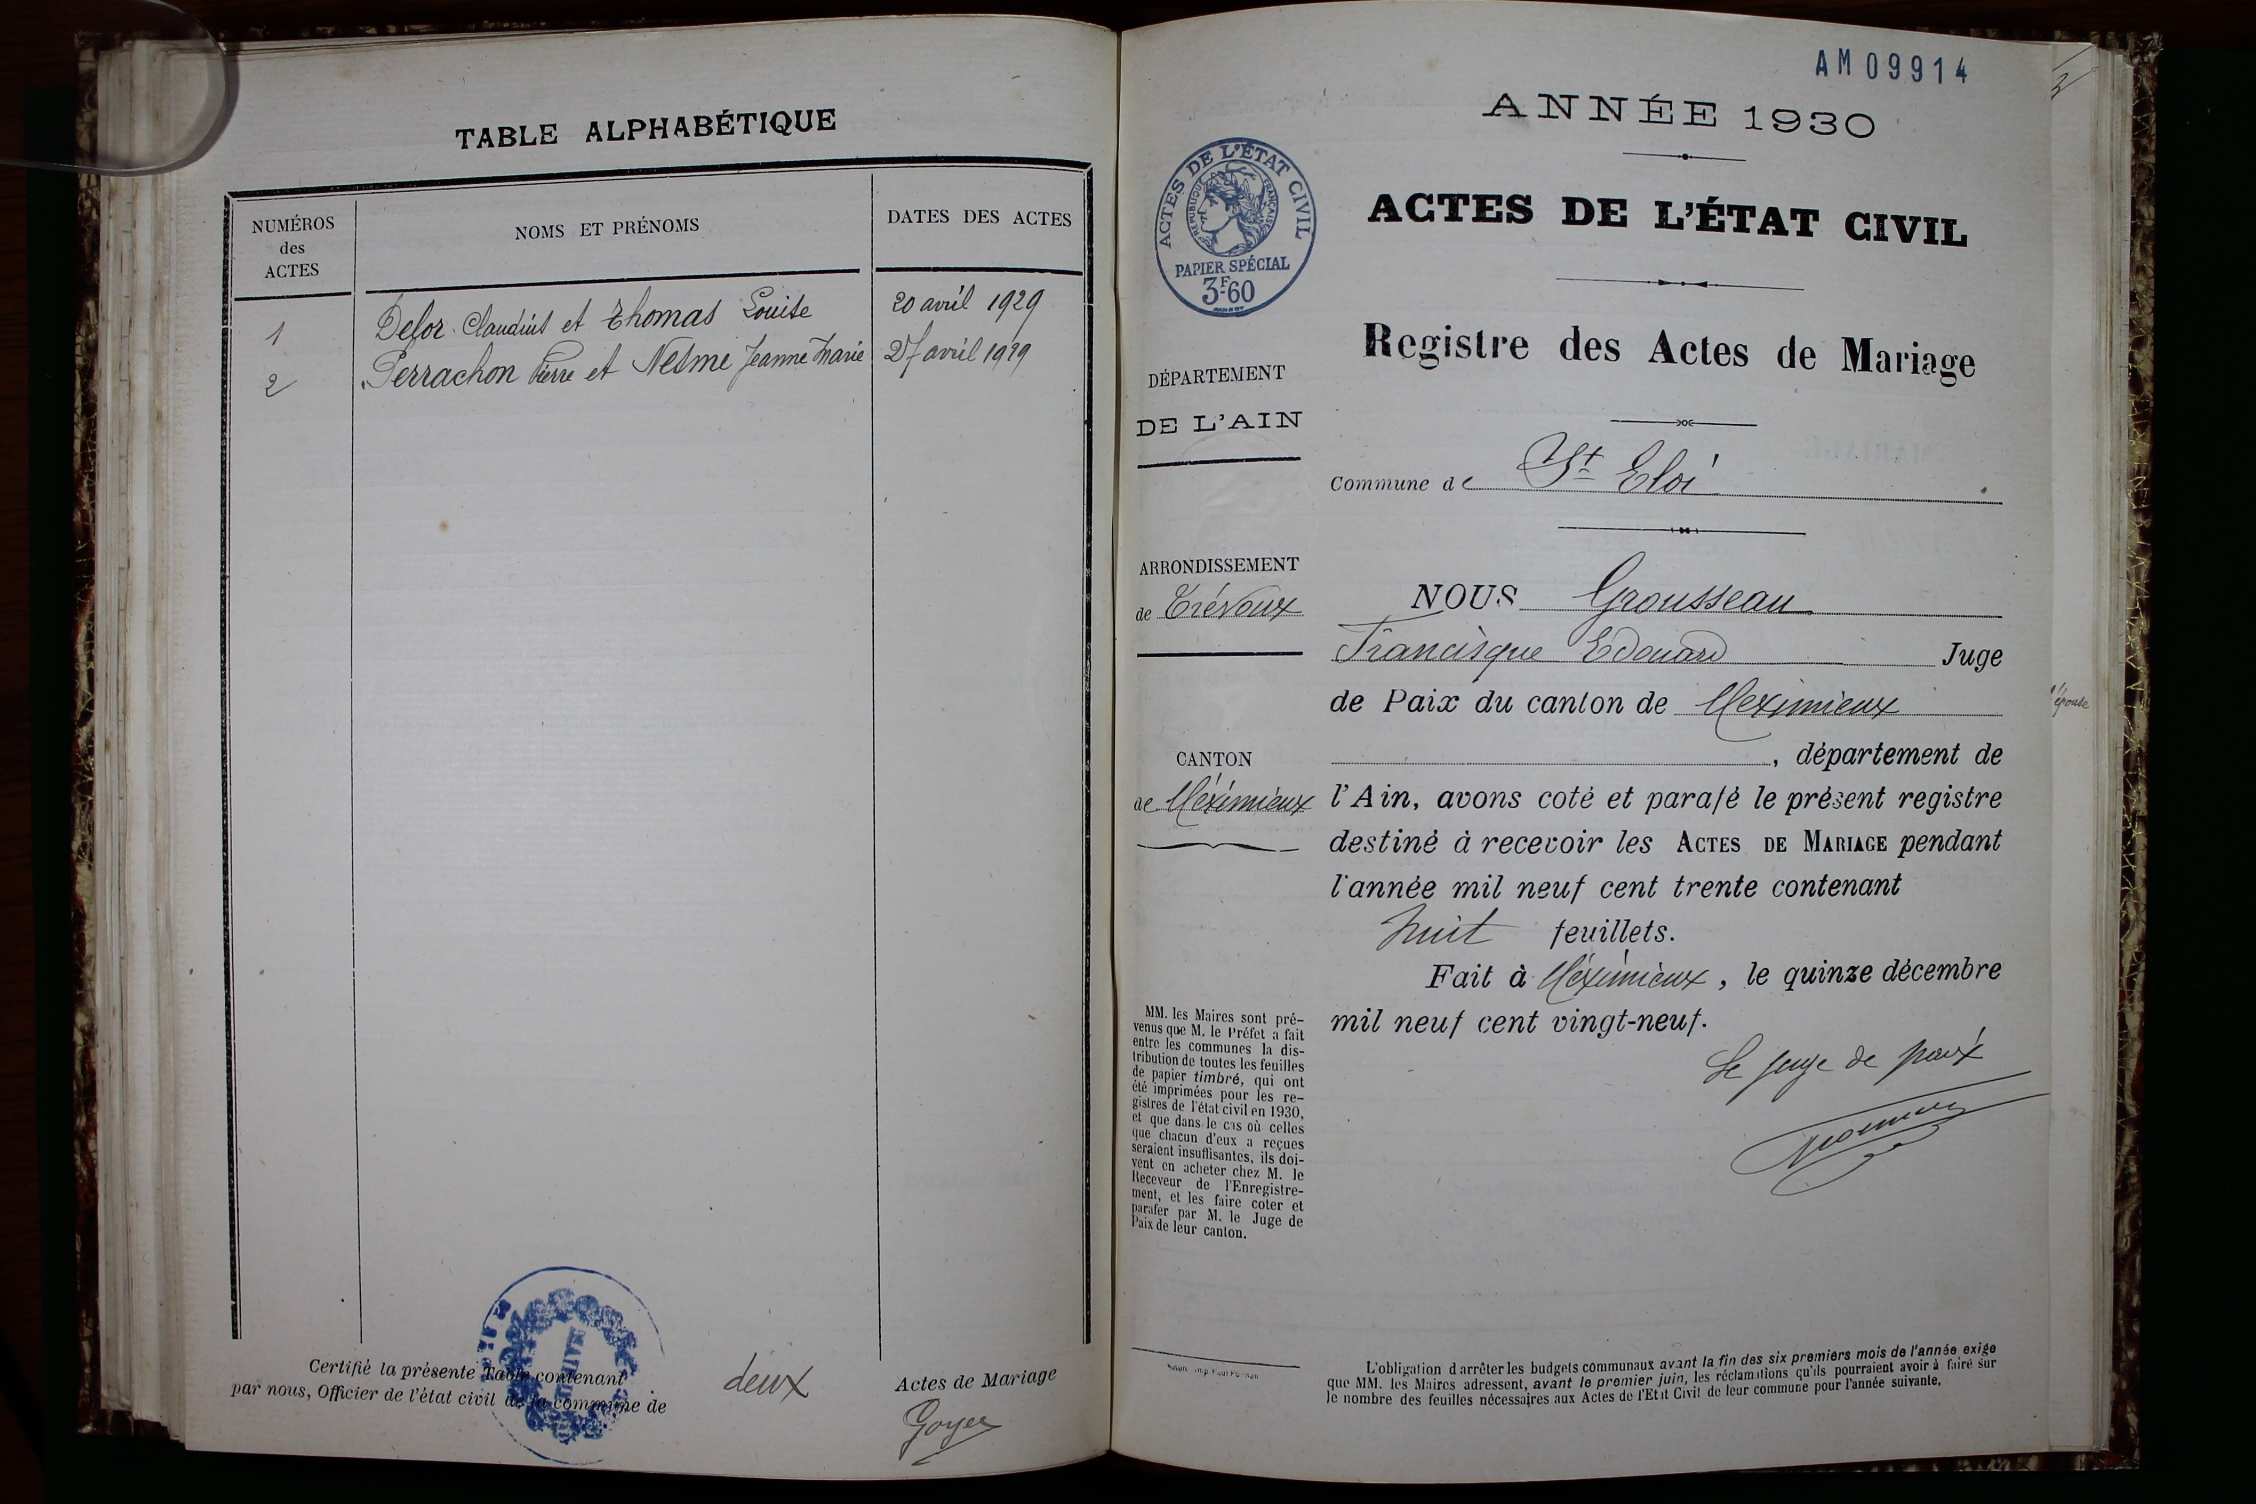 TABLE ALPHABÉTIQUE
NUMÉROS
des
ACTES
NOMS ET PRÉNOMS
DATES DES ACTES
1
Defor Claudius et Thomas Louise
20 avril 1929
2
Perrachon Pierre et Nesme Jeanne Marie
27 avril 1929
Certifié la présente Table contenant
deux
Actes de Mariage
par nous, Officier de l'état civil de la commune de
Goyer
MAIRIE
AM 09914
ANNÉE 1930
ACTES DE L'ÉTAT CIVIL
RÉPUBLIQUE FRANÇAISE
PAPIER SPÉCIAL
3F60
ACTES DE L'ÉTAT CIVIL
Registre des Actes de Mariage
DÉPARTEMENT
DE L'AIN
Commune de St Eloi
ARRONDISSEMENT
de Trévoux
CANTON
de Méximieux
NOUS Grousseau
Francisque Edouard Juge
de Paix du canton de Meximieux
, département de
l'Ain, avons coté et parafé le présent registre
destiné à recevoir les ACTES DE MARIAGE pendant
l'année mil neuf cent trente contenant
huit feuillets.
Fait à Méximieux, le quinze décembre
mil neuf cent vingt-neuf.
Le juge de paix
MM. les Maires sont pré-
venus que M. le Préfet a fait
entre les communes la dis-
tribution de toutes les feuilles
de papier timbré, qui ont
été imprimées pour les re-
gistres de l'état civil en 1930,
et que dans le cas où celles
que chacun d'eux a reçues
seraient insuffisantes, ils doi-
vent en acheter chez M. le
Receveur de l'Enregistre-
ment, et les faire coter et
parafer par M. le Juge de
Paix de leur canton.
L'obligation d'arrêter les budgets communaux avant la fin des six premiers mois de l'année exige
que MM. les Maires adressent, avant le premier juin, les réclamations qu'ils pourraient avoir à faire sur
le nombre des feuilles nécessaires aux Actes de l'Etat Civil de leur commune pour l'année suivante.
épouse